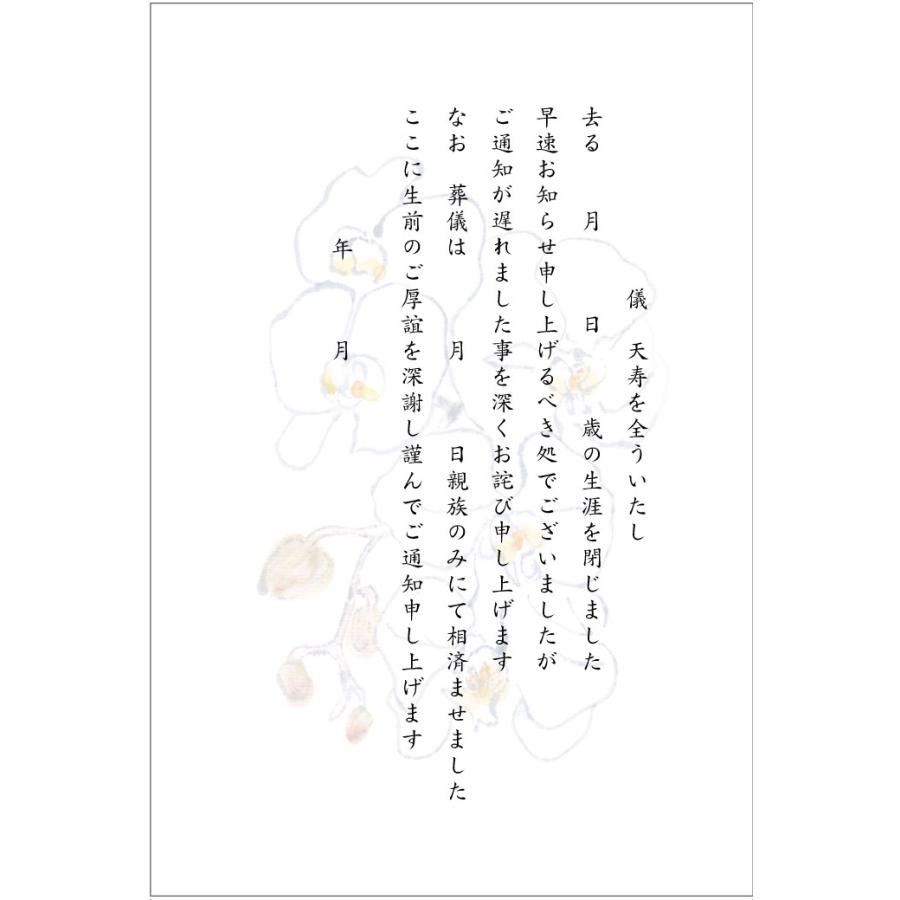 儀　天寿を全ういたし
去る　　月　　　日　　　歳の生涯を閉じました
早速お知らせ申し上げるべき処でございましたが
ご通知が遅れました事を深くお詫び申し上げます
なお　葬儀は　　　月　　　日親族のみにて相済ませました
ここに生前のご厚誼を深謝し謹んでご通知申し上げます
年　　　月